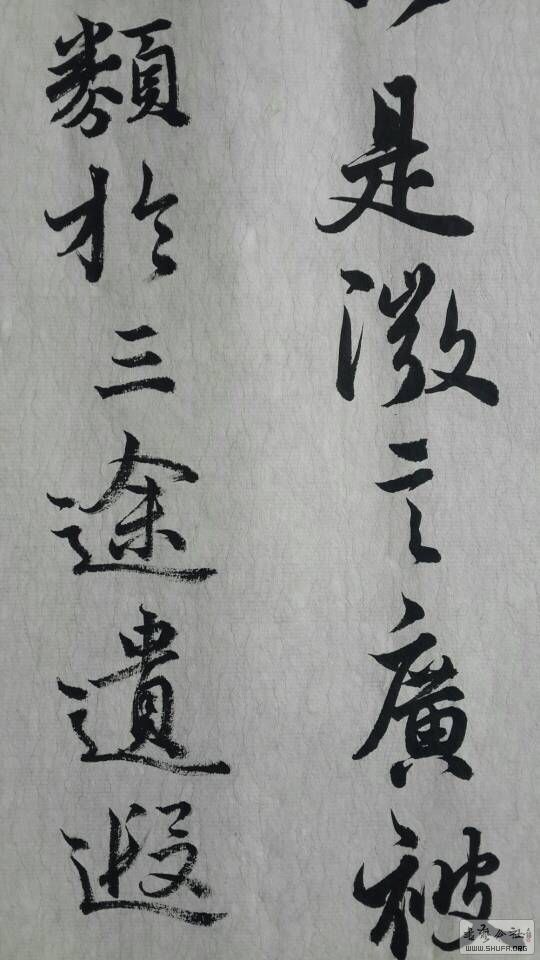 是微言廣被
類於三途遺遐
書藝公社
WWW.SHUFA.ORG